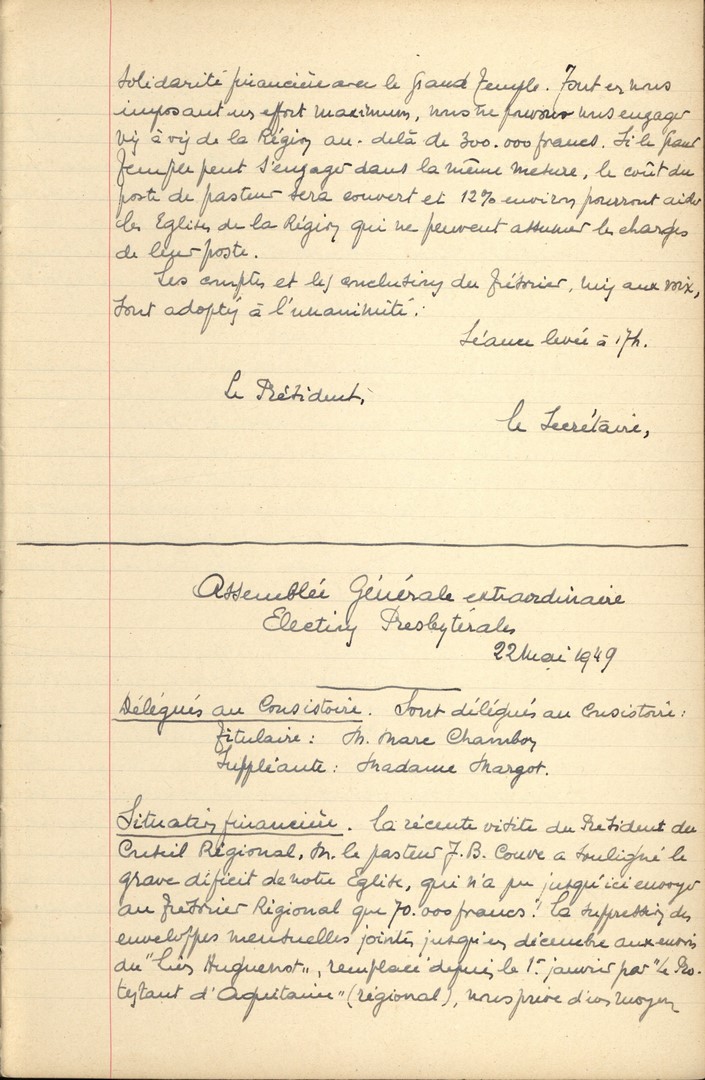 Solidarité financière avec le Grand Temple. Tout en nous
imposant un effort maximum, nous ne pouvons nous engager
vis à vis de la Région au-delà de 300.000 francs. Si le Grand
Temple peut s'engager dans la même mesure, le coût du
poste de pasteur sera couvert et 12% environ pourront aider
les Eglises de la Région qui ne peuvent assumer les charges
de leur poste.
Les comptes et les conclusions du Trésorier, mis aux voix,
sont adoptés à l'unanimité.
Séance levée à 17h.
Le Président,
Le Secrétaire,
Assemblée Générale extraordinaire
Elections Presbytérales
22 Mai 1949
Délégués au Consistoire. Sont délégués au Consistoire :
Titulaire : M. Marc Chambon
Suppléante : Madame Margot.
Situation financière. La récente visite du Président du
Conseil Régional, M. le pasteur J.B. Couve a souligné le
grave déficit de notre Eglise, qui n'a pu jusqu'ici envoyer
au Trésorier Régional que 70.000 francs. La suppression des
enveloppes mensuelles jointes jusqu'en décembre aux envois
du "Lien Huguenot", remplacé depuis le 1er janvier par "Le Pro-
testant d'Aquitaine" (régional), nous prive d'un moyen